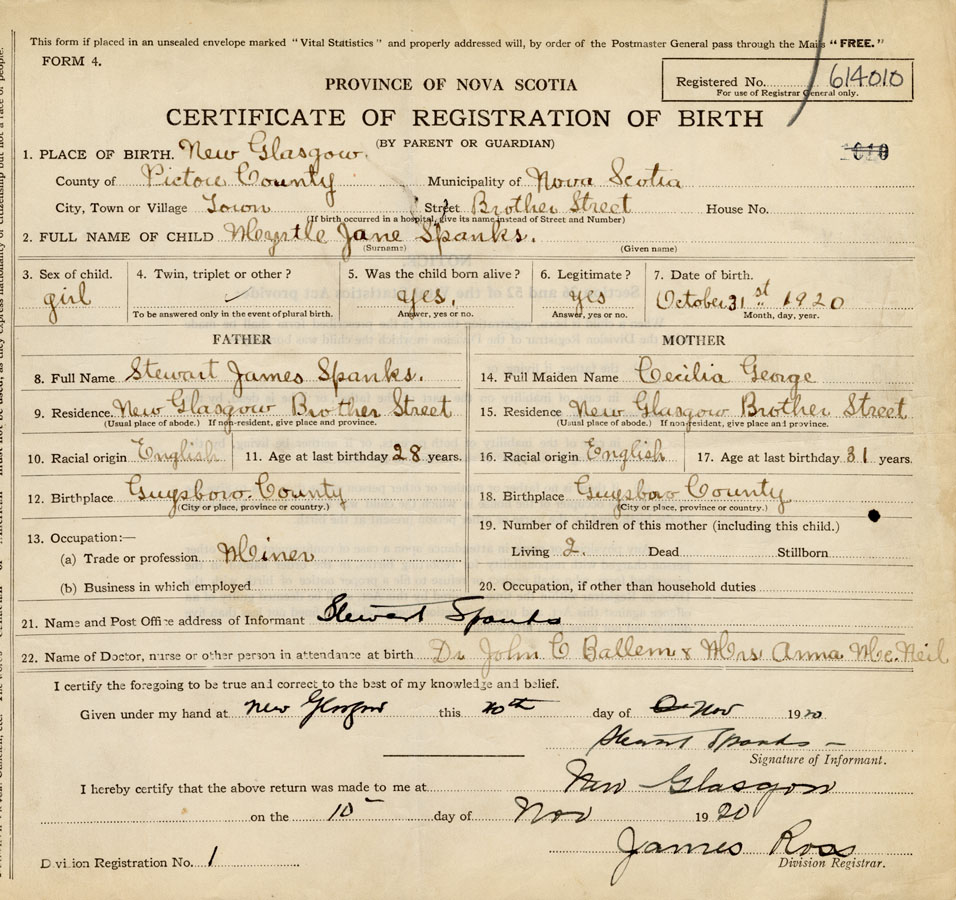 This form if placed in an unsealed envelope marked "Vital Statistics" and properly addressed will, by order of the Postmaster General pass through the Mails "FREE."
FORM 4.
PROVINCE OF NOVA SCOTIA
Registered No. 614010
For use of Registrar General only.
CERTIFICATE OF REGISTRATION OF BIRTH
(BY PARENT OR GUARDIAN)
1. PLACE OF BIRTH. New Glasgow.
County of Pictou County Municipality of Nova Scotia
City, Town or Village Town Street Brother Street House No.
(If birth occurred in a hospital, give its name instead of Street and Number)
2. FULL NAME OF CHILD Myrtle Jane Spanks.
(Surname) (Given name)
3. Sex of child. 4. Twin, triplet or other? 5. Was the child born alive? 6. Legitimate? 7. Date of birth.
girl yes. yes October 31st 1920
To be answered only in the event of plural birth. Answer, yes or no. Answer, yes or no. Month, day, year.
FATHER MOTHER
8. Full Name Stewart James Spanks. 14. Full Maiden Name Cecilia George
9. Residence. New Glasgow Brother Street 15. Residence New Glasgow Brother Street
(Usual place of abode.) If non-resident, give place and province. (Usual place of abode.) If non-resident, give place and province.
10. Racial origin English 11. Age at last birthday 28 years. 16. Racial origin English 17. Age at last birthday 31 years.
12. Birthplace Guysboro. County 18. Birthplace Guysboro County
(City or place, province or country.) (City or place, province or country.)
13. Occupation:— 19. Number of children of this mother (including this child.)
(a) Trade or profession Miner Living 2. Dead Stillborn
(b) Business in which employed 20. Occupation, if other than household duties
21. Name and Post Office address of Informant Stewart Spanks
22. Name of Doctor, nurse or other person in attendance at birth Dr John C Ballem & Mrs Anna Mc.Neil
I certify the foregoing to be true and correct to the best of my knowledge and belief.
Given under my hand at New Glasgow this 10th day of Nov 1920
Stewart Spanks
Signature of Informant.
I hereby certify that the above return was made to me at New Glasgow
on the 10 day of Nov 1920
James Ross
Division Registration No. 1 Division Registrar.